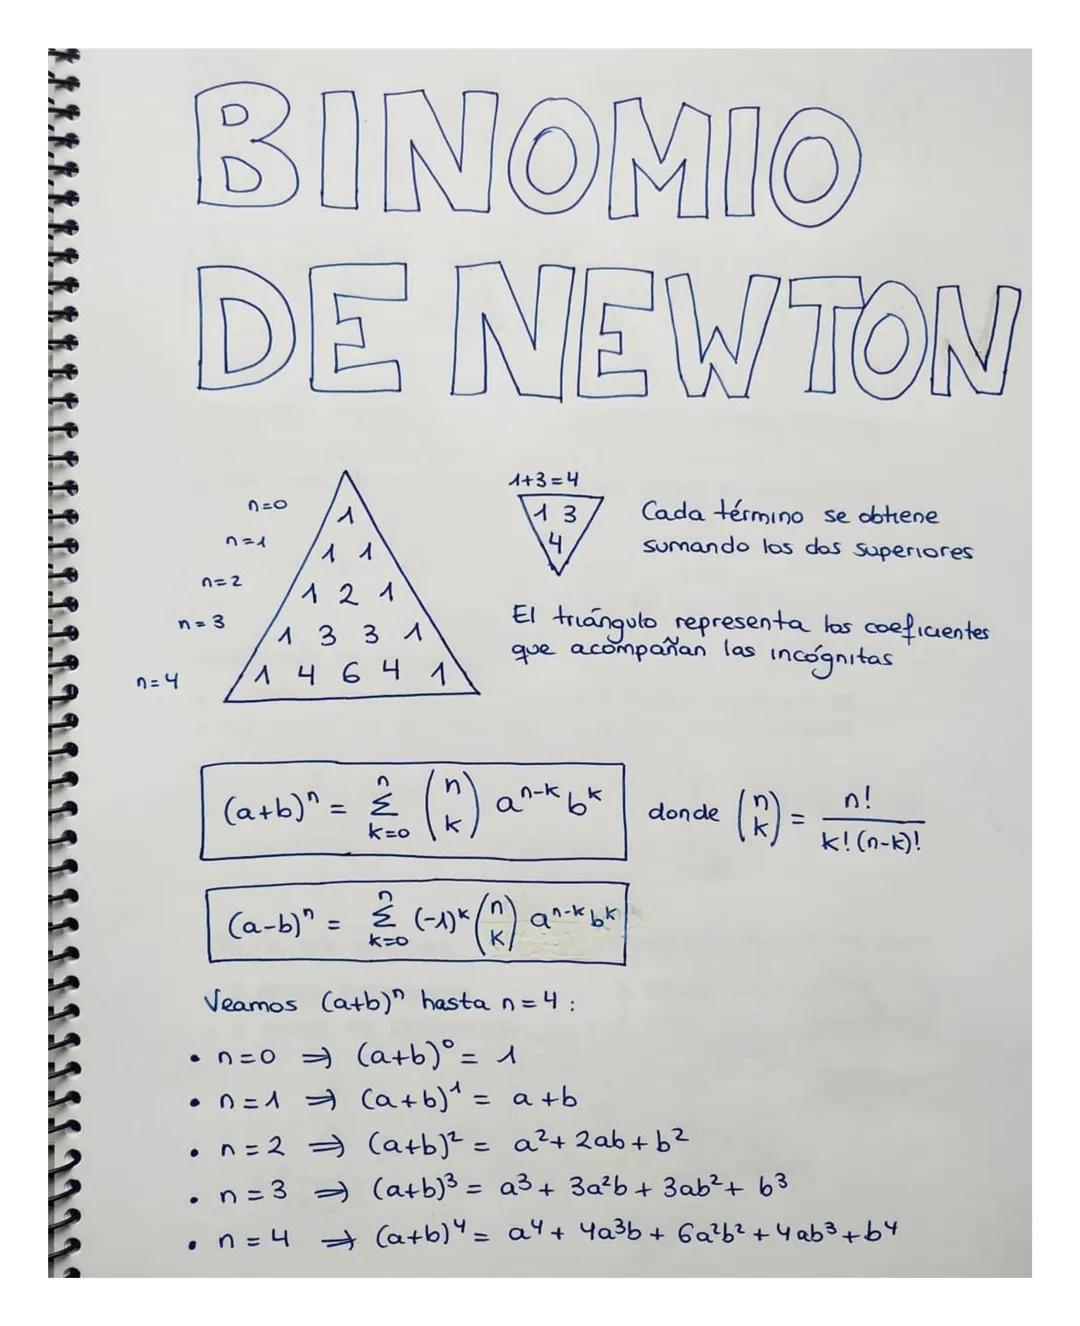 BINOMIO
DE NEWTON
n=0 1
n=1 1 1
n=2 1 2 1
n=3 1 3 3 1
n=4 1 4 6 4 1
1+3=4
1 3
4
Cada término se obtiene
sumando los dos superiores
El triángulo representa los coeficientes
que acompañan las incógnitas
(a+b)ⁿ = Σ_{k=0}^{n} (n k) a^{n-k} b^k donde (n k) = n! / k!(n-k)!
(a-b)ⁿ = Σ_{k=0}^{n} (-1)^k (n k) a^{n-k} b^k
Veamos (a+b)ⁿ hasta n=4:
• n=0 ⇒ (a+b)⁰ = 1
• n=1 ⇒ (a+b)¹ = a+b
• n=2 ⇒ (a+b)² = a²+2ab+b²
• n=3 ⇒ (a+b)³ = a³+3a²b+3ab²+b³
• n=4 ⇒ (a+b)⁴ = a⁴+4a³b+6a²b²+4ab³+b⁴